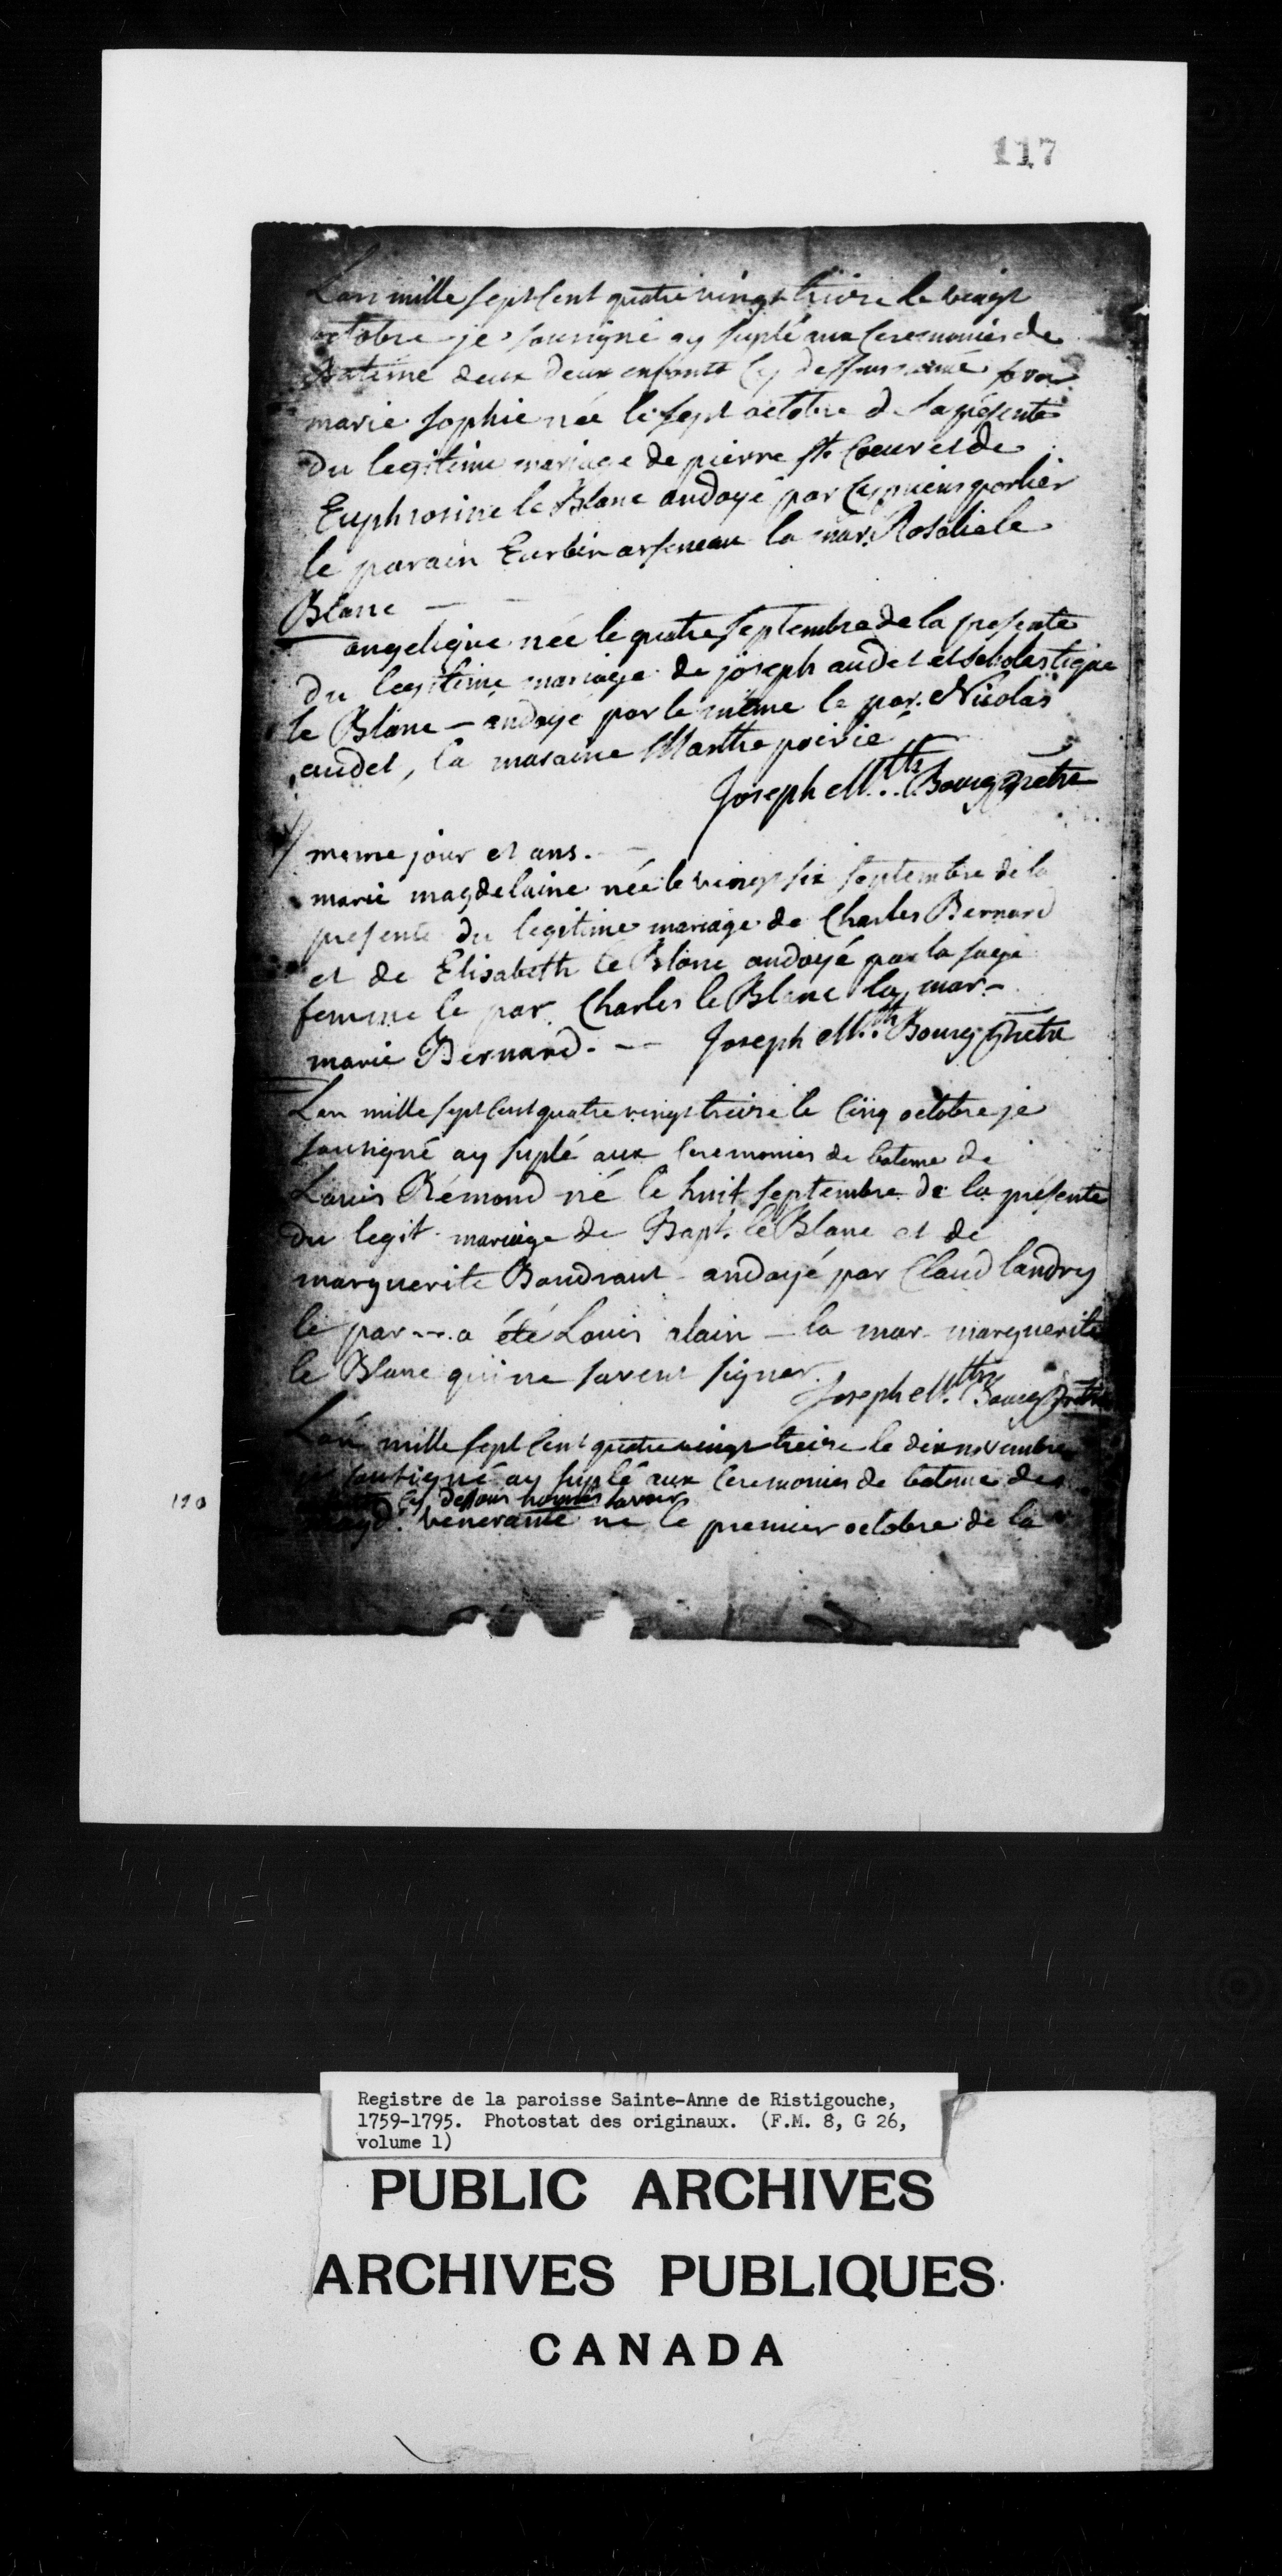 117
Lan mille sept Cent quatre vingt treize le vingt
octobre je sousigné ay suplé aux Ceremonies de
Bateme deux enfants Cy dessous
marie sophie née le sept octobre de la présente
du legitime mariage de pierre st. Coeur et de
Euphrosine le Blanc andoyé par
le parain Eurbin arseneau la mar. Rosalie le
Blanc —
angelique née le quatre septembre de la presente
du legitime mariage de joseph audet et scholastique
le Blanc — andoyé par le même le par. Nicolas
audet, la maraine Marthe poirié
Joseph M.ths Bourg ptretre
meme jour et ans. —
marie magdelaine née le vingt six septembre de la
presente du legitime mariage de Charles Bernard
et de Elisabeth le Blanc andoyé par la sage
femme le par. Charles le Blanc la mar —
marie Bernard. — Joseph M.th Bourg Pretre
Lan mille sept Cent quatre vingt treize le Cinq octobre je
sousigné ay suplé aux Ceremonies de bateme de
Louis Rémond né le huit septembre de la présente
du legit mariage de Bapt. le Blanc et de
marguerite Boudraut andoyé par Claud landry
le par — a été Louis alain — la mar marguerite
le Blanc qui ne savent signer.
Joseph M.ths Bourg Pretre
Lan mille sept Cent quatre vingt treize le dix novembre
je sousigné ay suplé aux Ceremonies de bateme des
cy dessous nommés savoir
venerante né le premier octobre de la
190
Registre de la paroisse Sainte-Anne de Ristigouche,
1759-1795. Photostat des originaux. (F.M. 8, G 26,
volume 1)
PUBLIC ARCHIVES
ARCHIVES PUBLIQUES
CANADA